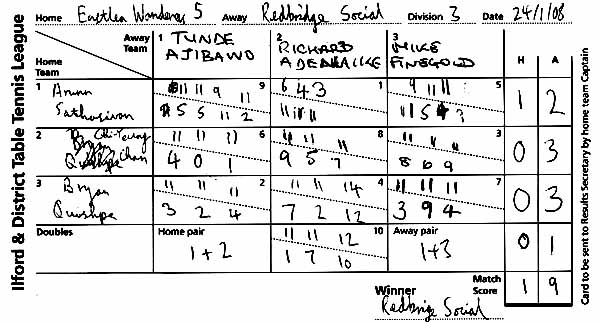 Ilford & District Table Tennis League
Home Away Redbridge Social Division 3 Date 24/1/08
Home Team Away Team 1 TUNDE AJIBAWO 2 RICHARD 3 MIKE FINEGOLD H A
1 Arunn 9 1 5 1 2
11 11 9 11 6 4 3 9 11 11
5 5 11 2 11 11 11 11 5
2 Chi-Yeung Chan 6 8 3 0 3
11 11 11 11 11 11 11 11 11
4 0 1 9 5 7 8 6 9
3 Bryan Quishpe 2 4 7 0 3
11 11 11 11 11 14 11 11 11
3 2 4 7 2 12 3 9 4
Doubles Home pair 1+2 10 Away pair 1+3 0 1
11 11 12
1 7 10
Match Score 1 9
Winner Redbridge Social
Card to be sent to Results Secretary by home team Captain